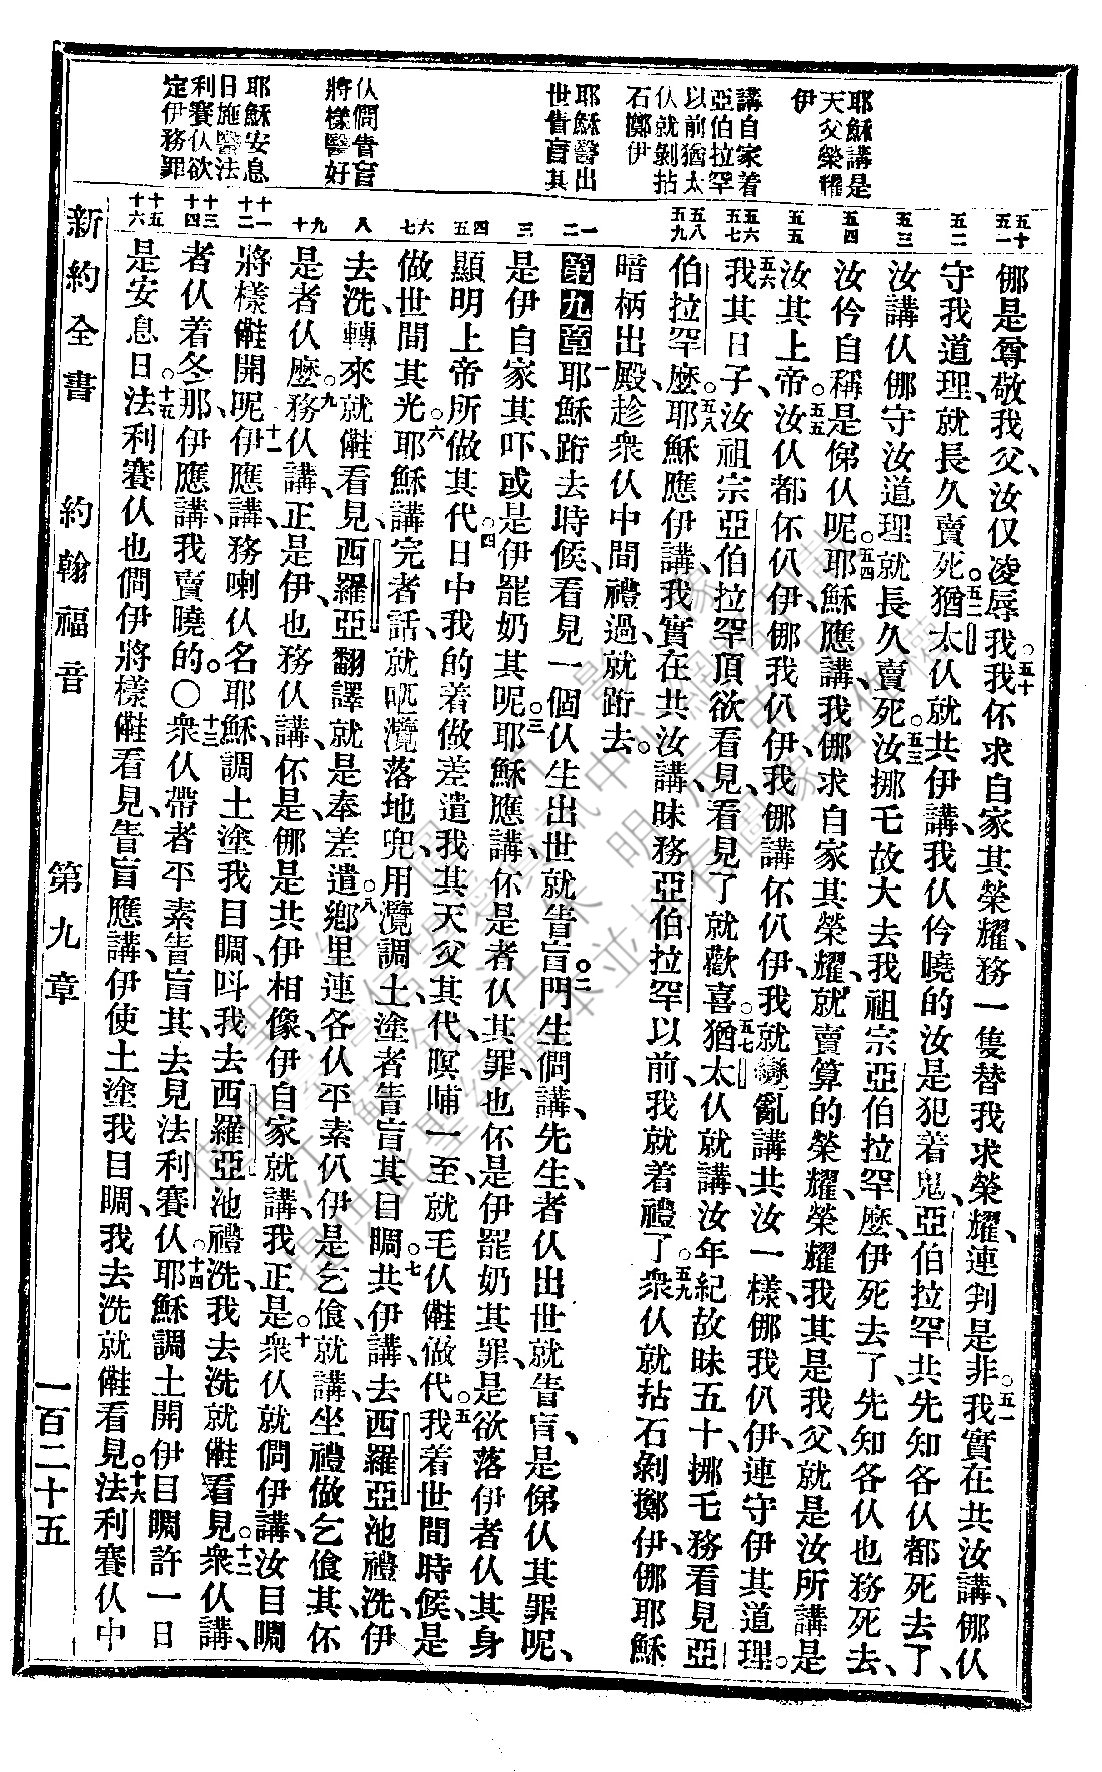 耶穌講是
天父榮耀
伊
講自家着
亞伯拉罕
以前猶太
仫就剝拈
石擲伊
耶穌醫出
世眚盲其
仫僩眚盲
將樣醫好
耶穌安息
日施醫法
利賽仫欲
定伊務罪
五十 五一
五二
五三
五四
五五
五六 五七
五八 五九
一 二
三
四 五
六 七
八
九 十
十一 十二
十三 十四
十五 十六
㑚是尊敬我父、汝仅凌辱我。五十我伓求自家其榮耀、務一隻替我求榮耀、連判是非。五一我實在共汝講、㑚仫
守我道理、就長久賣死。五二猶太仫就共伊講、我仫伶曉的汝是犯着鬼、亞伯拉罕共先知各仫都死去了、
汝講仫㑚守汝道理就長久賣死。五三汝挪乇故大去我祖宗亞伯拉罕麼、伊死去了、先知各仫也務死去、
汝伶自稱是俤仫呢。五四耶穌應講、我㑚求自家其榮耀、就賣算的榮耀、榮耀我其是我父、就是汝所講是
汝其上帝。五五汝仫都伓仈伊、㑚我仈伊、我㑚講伓仈伊、我就變亂講共汝一樣、㑚我仈伊、連守伊其道理。
五六我其日子、汝祖宗亞伯拉罕頂欲看見、看見了就歡喜。五七猶太仫就講、汝年紀故昧五十、挪乇務看見亞
伯拉罕麼。五八耶穌應伊講、我實在共汝講、昧務亞伯拉罕以前、我就着禮了。五九衆仫就拈石剝擲伊、㑚耶穌
暗柄出殿、趁衆仫中間禮過、就跖去。
第九章 一耶穌跖去時候、看見一個仫生出世就眚盲。二門生僩講、先生、者仫出世就眚盲、是俤仫其罪呢、
是伊自家其吓、或是伊罷奶其呢。三耶穌應講、伓是者仫其罪、也伓是伊罷奶其罪、是欲落伊者仫其身
顯明上帝所做其。四代日中我的着做差遣我其天父其代、暝晡一至、就毛仫㒙做代。五我着世間時候、是
做世間其光。六耶穌講完者話、就呸灠落地兜、用灠調土、塗者眚盲其目睭。七共伊講、去西羅亞池禮洗、伊
去洗轉來就㒙看見、西羅亞翻譯就是奉差遣。八鄉里連各仫平素仈伊是乞食、就講、坐禮做乞食其、伓
是者仫麼。九務仫講、正是伊、也務仫講、伓是、㑚是共伊相像、伊自家就講、我正是。十衆仫就僩伊講、汝目睭
將樣㒙開呢。十一伊應講、務喇仫名耶穌、調土塗我目睭、呌我去西羅亞池禮洗、我去洗就㒙看見。十二衆仫講、
者仫着冬那、伊應講、我賣曉的。〇十三衆仫帶者平素眚盲其、去見法利賽仫。十四耶穌調土開伊目睭許一日
是安息日。十五法利賽仫也僩伊將樣㒙看見、眚盲應講、伊使土塗我目睭、我去洗就㒙看見。十六法利賽仫中
新約全書 約翰福音 第九章 一百二十五